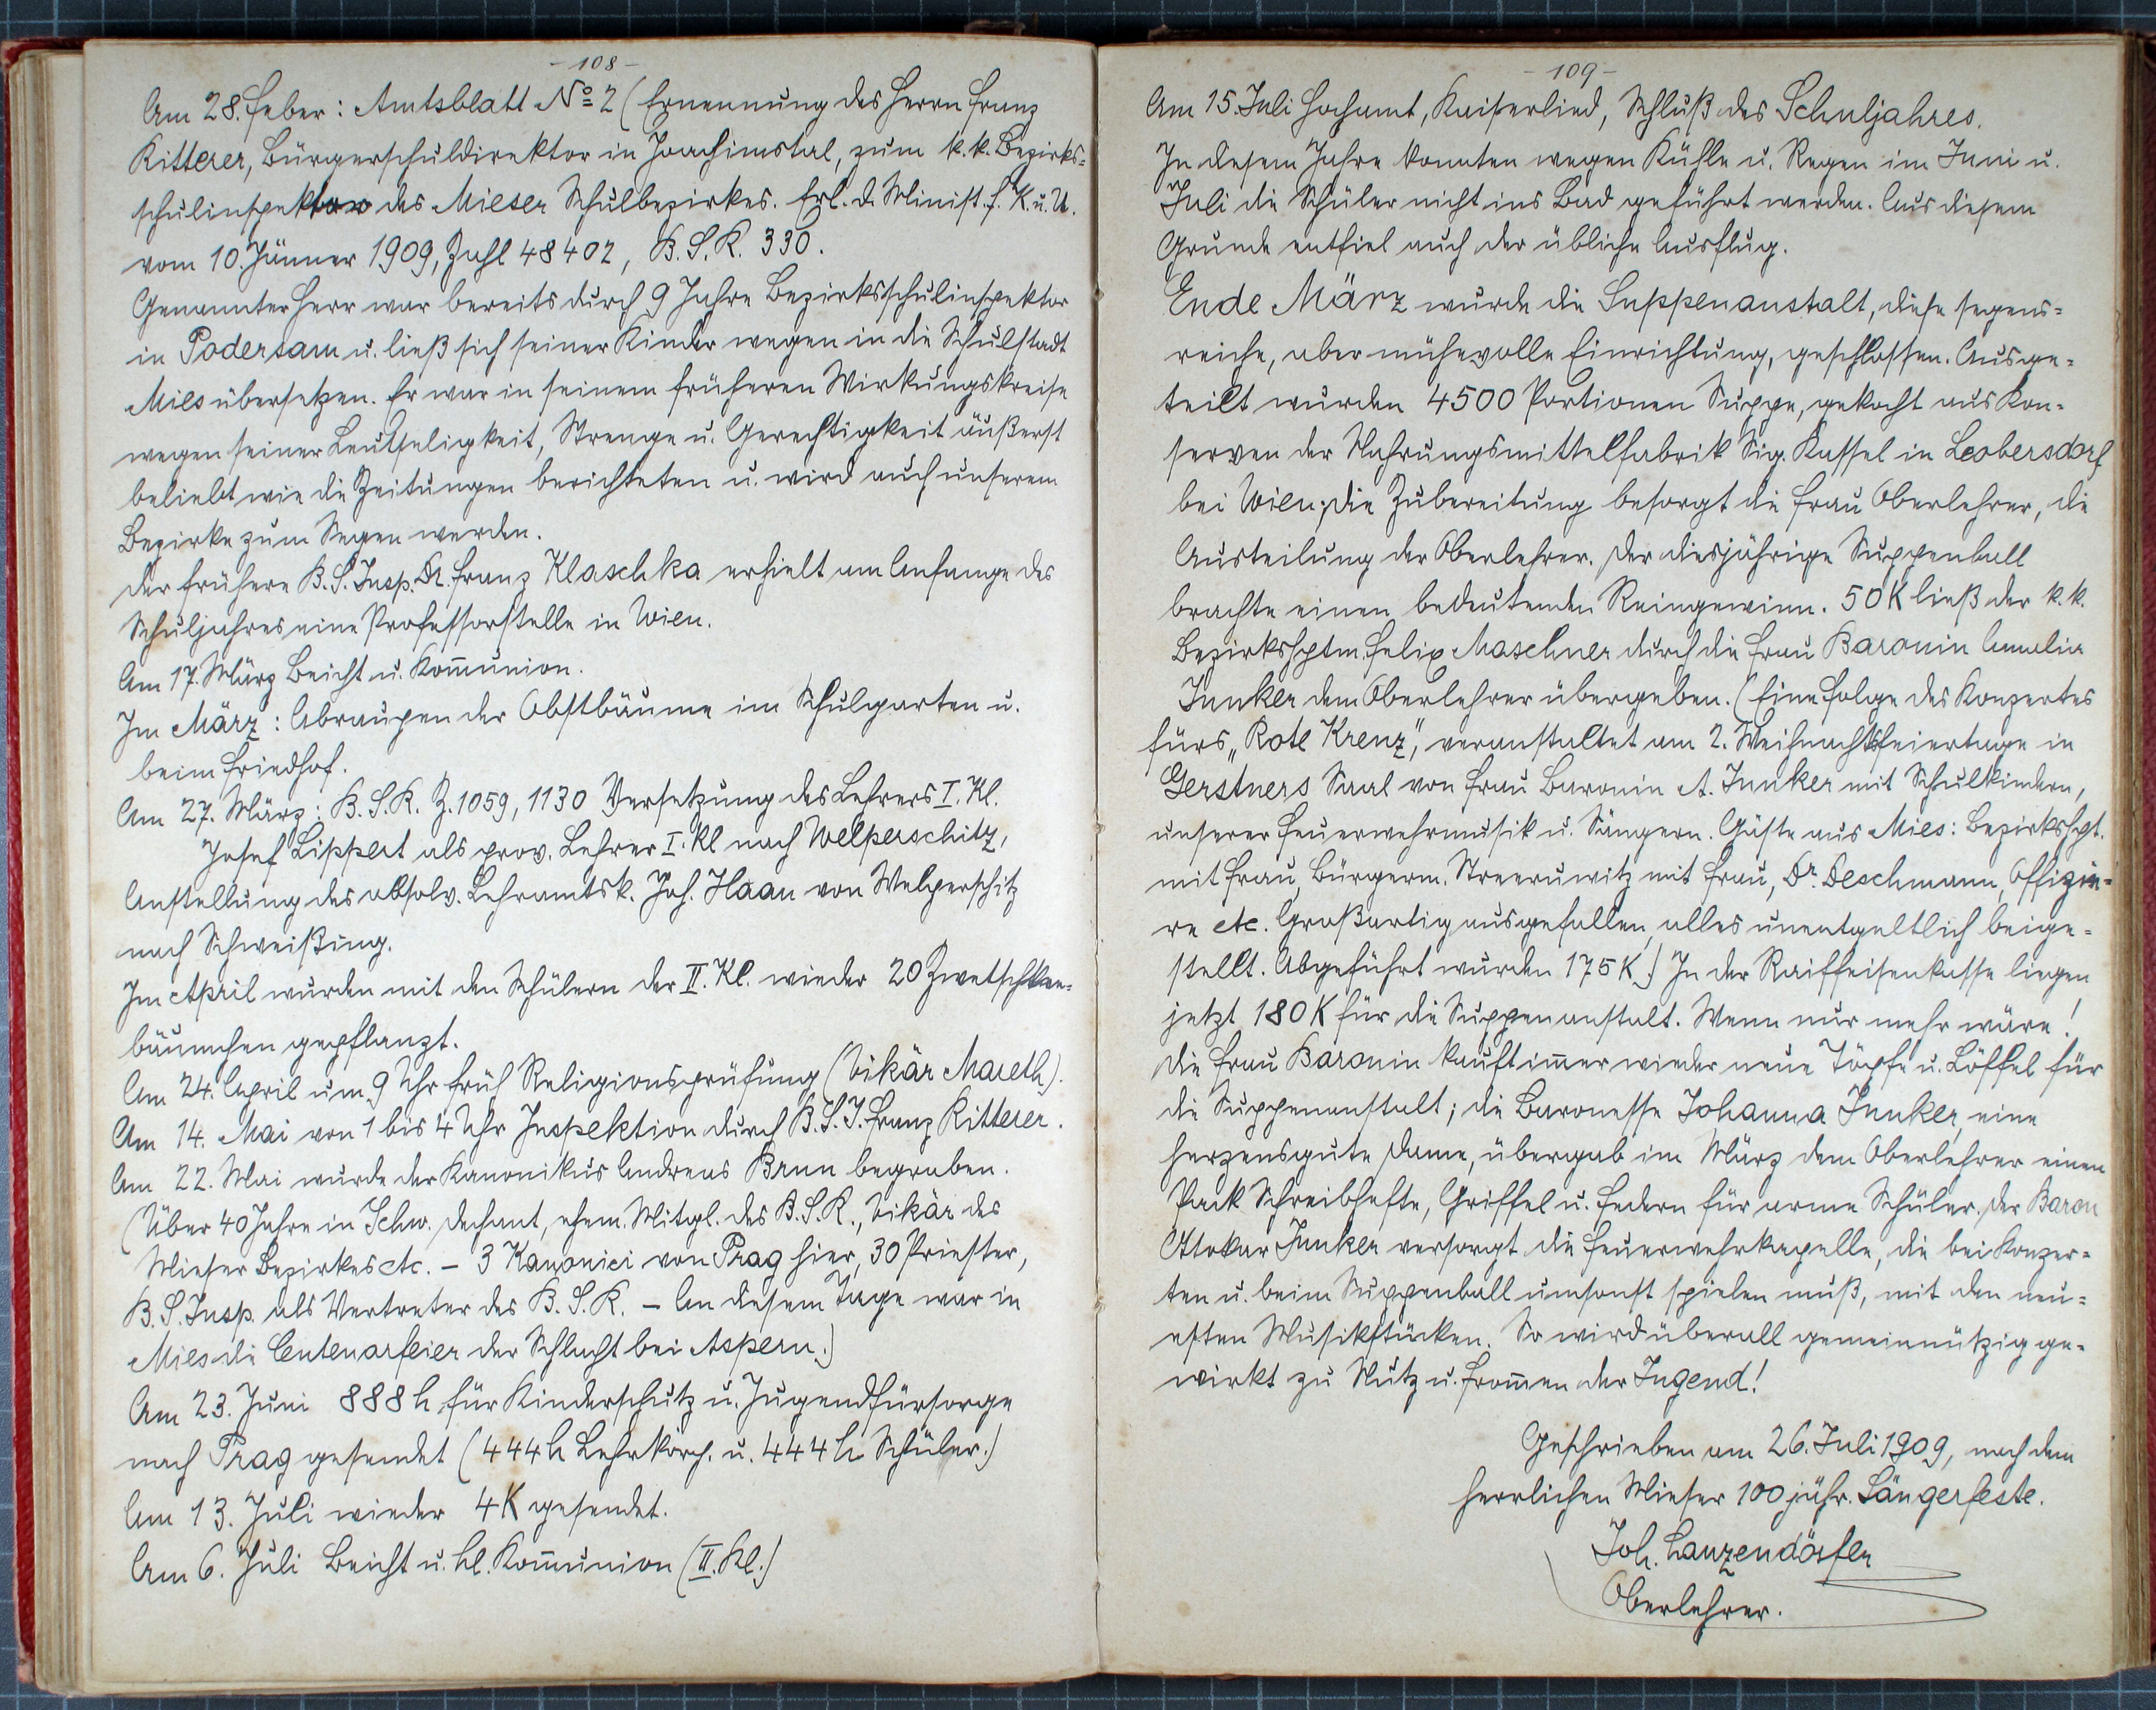 - 108 -
Am 28. Feber: Amtsblatt No 2 (Ernennung des Herrn Franz
Ritterer, Bürgerschuldirektor in Joachimstal, zum k.k. Bezirks=
schulinspektor des Mieser Schulbezirkes. Erl. d. Minist. f. K. u. U.
vom 10. Jänner 1909, Zahl 48402, B.S.R. 330.
Genannter Herr war bereits durch 9 Jahre Bezirksschulinspektor
in Podersam u. ließ sich seiner Kinder wegen in die Schulstadt
Mies übersetzen. Er war in seinem früheren Wirkungskreise
wegen seiner Leutseligkeit, Strenge u. Gerechtigkeit äußerst
beliebt wie die Zeitungen berichteten u. wird auch unserem
Bezirke zum Segen werden.
Der frühere B.S.Insp. Dr. Franz Klaschka erhielt am Anfange des
Schuljahres eine Professorstelle in Wien.
Am 17. März Beicht u. Kom̅union.
Im März: Abraupen der Obstbäume im Schulgarten u.
beim Friedhof.
Am 27. März: B.S.R. Z. 1059, 1130 Versetzung des Lehrers I. Kl.
Josef Lippert als prov. Lehrer I. Kl nach Welperschitz,
Anstellung des absolv. Lehramtsk. Joh. Haan von Welperschitz
nach Schweißing.
Im April wurden mit den Schülern der II. Kl. wieder 20 Zwetschken=
bäumchen gepflanzt.
Am 24. April um 9 Uhr früh Religionsprüfung (Vikär Mareth).
Am 14. Mai von 1 bis 4 Uhr Inspektion durch B.S.I. Franz Ritterer.
Am 22. Mai wurde der Kanonikus Andreas Brun begraben.
(Über 40 Jahre in Schw. Dechant, ehem. Mitgl. des B.S.R., Vikär des
Mieser Bezirkes etc. – 3 Kanonici von Prag hier, 30 Priester,
B.S.Insp. als Vertreter des B.S.R. – An diesem Tage war in
Mies die Centenarfeier der Schlacht bei Aspern.)
Am 23. Juni 888 h für Kinderschutz u. Jugendfürsorge
nach Prag gesendet (444 h Lehrkörp. u. 444 h Schüler.)
Am 13. Juli wieder 4 K gesendet.
Am 6. Juli Beicht u. hl. Kom̅union (II. Kl.)
- 109 -
Am 15. Juli Hochamt, Kaiserlied, Schluß des Schuljahres.
In diesem Jahre konnten wegen Kühle u. Regen im Juni u.
Juli die Schüler nicht ins Bad geführt werden. Aus diesem
Grunde entfiel auch der übliche Ausflug.
Ende März wurde die Suppenanstalt, diese segens=
reiche, aber mühevolle Einrichtung, geschlossen. Ausge=
teilt wurden 4500 Portionen Suppe, gekocht aus Kon=
serven der Nahrungsmittelfabrik Sig. Kassel in Leobersdorf
bei Wien; die Zubereitung besorgt die Frau Oberlehrer, die
Austeilung der Oberlehrer. Der diesjährige Suppenball
brachte einen bedeutenden Reingewinn. 50 K ließ der k.k.
Bezirkshptm. Felix Maschner durch die Frau Baronin Amalia
Junker dem Oberlehrer übergeben. (Eine Folge des Konzertes
fürs „Rote Kreuz", veranstaltet am 2. Weihnachtsfeiertage in
Gerstners Saal von Frau Baronin A. Junker mit Schulkindern,
unserer Feuerwehrmusik u. Sängern. Gäste aus Mies: Bezirkshpt.
mit Frau, Bürgerm. Streeruwitz mit Frau, Dr. Deschmann, Offizie=
re etc. Großartig ausgefallen, alles unentgeltlich beige=
stellt. Abgeführt wurden 175 K.) In der Raiffeisenkasse liegen
jetzt 180 K für die Suppenanstalt. Wenn nur mehr wäre!
Die Frau Baronin kauft im̅er wieder neue Töpfe u. Löffel für
die Suppenanstalt; die Baronesse Johanna Junker, eine
herzensgute Dame, übergab im März dem Oberlehrer einen
Pack Schreibhefte, Griffel u. Federn für arme Schüler. Der Baron
Ottokar Junker versorgt die Feuerwehrkapelle, die bei Konzer=
ten u. beim Suppenball umsonst spielen muß, mit den neu=
esten Musikstücken. So wird überall gemeinnützig ge=
wirkt zu Nutz u. From̅en der Jugend!
Geschrieben am 26. Juli 1909, nach dem
herrlichen Mieser 100jähr. Sängerfeste.
Joh. Lanzendörfer
Oberlehrer.